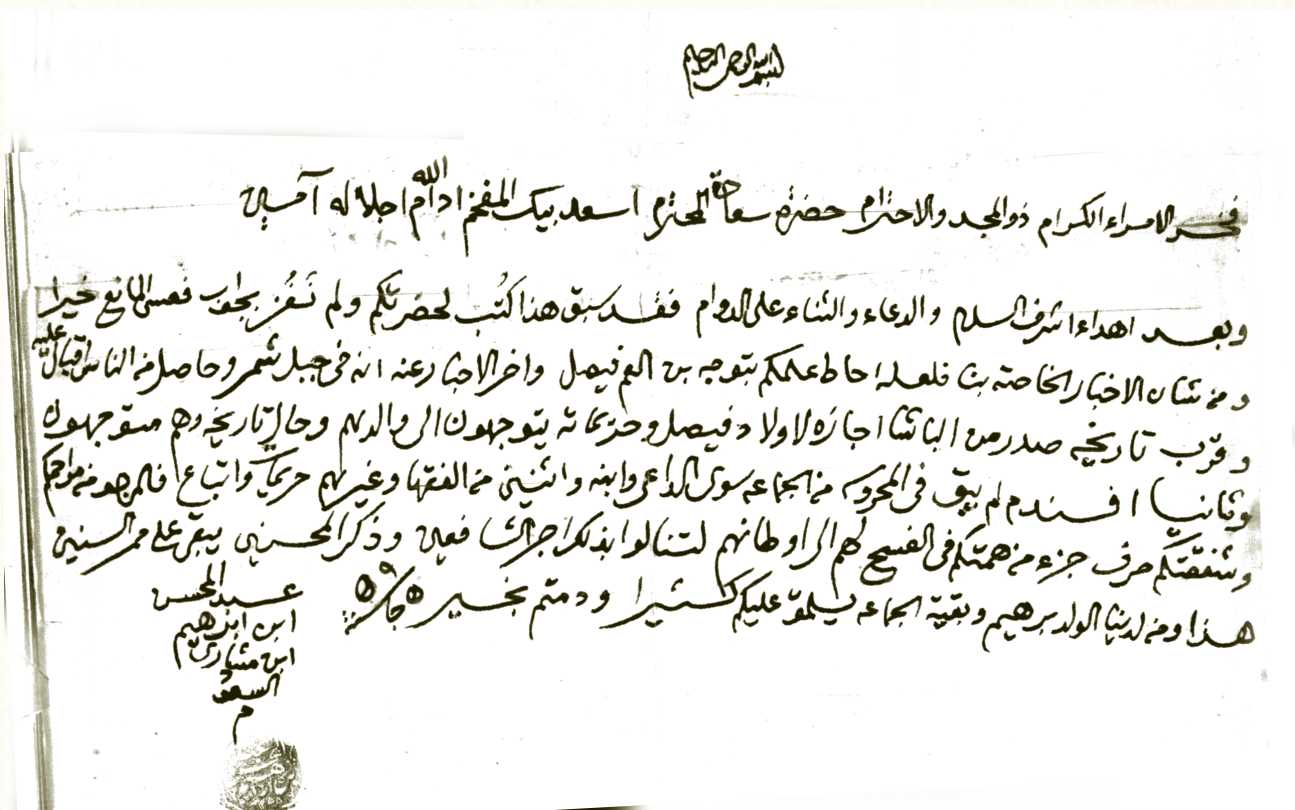 بسم الله الرحمن الرحيم
فخر الامراء الكرام ذو المجد والاحترام حضرة سعادة المحترم اسعد بيك المفخم ادام الله اجلاله آمين
وبعد اهداء اشرف السلام والدعاء والثناء على الدوام فقد سبق هذا كُتُب لحضرتكم ولم نَفُز بجواب فعسى المانع خيرا
ومن شان الاخبار الخاصة بنا فلعله احاط علمكم بتوجه بن العم فيصل واخر الاخبار عنه انه في جبل شمر وحاصل من الناس اقبال عليه
وقرب تاريخه صدر من الباشا اجازه لاولاد فيصل وحريماته يتوجهون الى والدهم وحال تاريخه وهم متوجهون
وثانيا افندم لم يبق في المحروسه من الجماعه سوى الداعي وابنه واثنين من الفقها وغيرهم حريم واتباع فالمرجو من مراحمكم
وشفقتكم صرف جزء من همتكم في الفسح لهم الى اوطانهم لتنالوا بذلك اجر الشافعين وذكر المحسنين يبقى على ممر السنين
هذا ومن لدينا الولد برهيم وبقية الجماعه يسلمو عليكم كثيرا ودمتم بخير
عبد المحسن
ابن ابرهيم
ابن مشاري
السعود
م